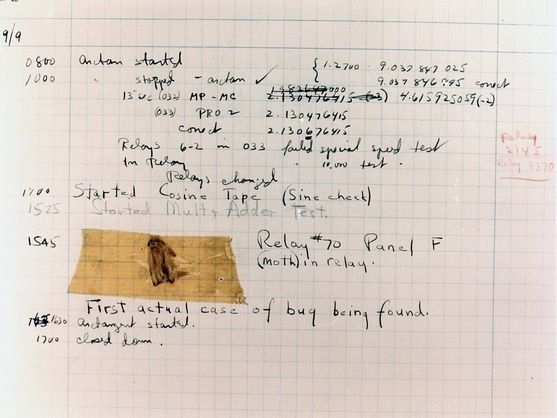 9/9
0800 antan started { 1.2700 9.037 847 025
1000 " stopped - antan ✓ 9.037 846 995 conect
13" uc (032) MP - MC 2.130476415 4.615925059(-2)
(033) PRO 2 2.130476415
conect 2.130676415
Relays 6-2 in 033 failed special speed test
In Relay " 10,000 test .
Relays changed
Relay
Relay 3370
Started Cosine Tape (Sine check)
1525 Started Mult + Adder Test.
1545 Relay #70 Panel F
(Moth) in relay.
First actual case of bug being found.
1630 antangent started.
1700 closed down.